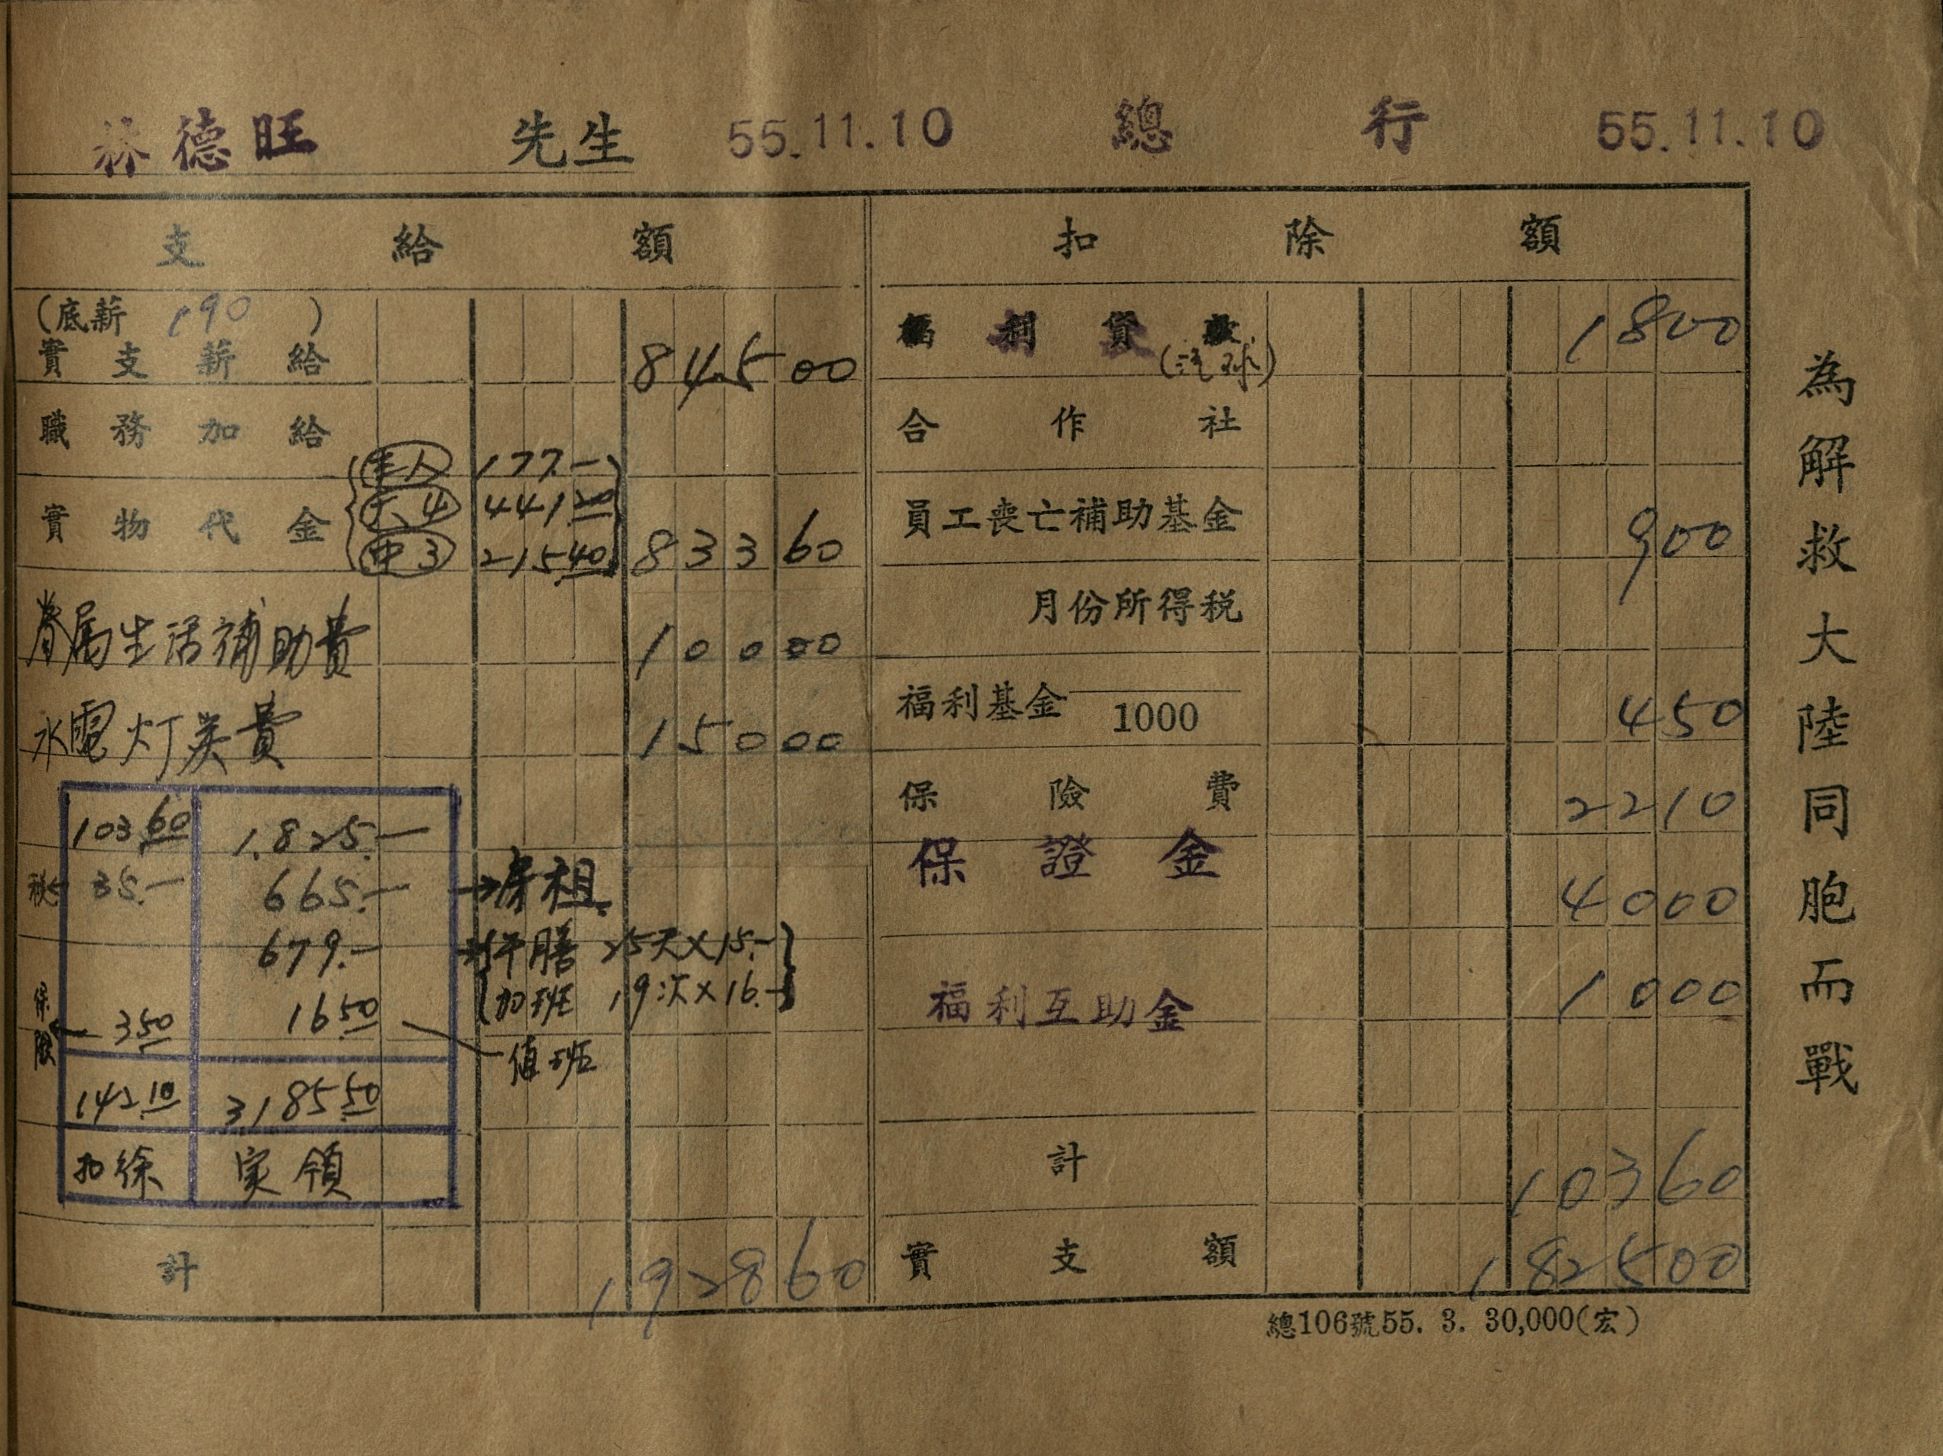 林德旺 先生 55.11.10 總行 55.11.10
支給額
(底薪 190 )
實支薪給 845 00
職務加給
實物代金 833 60
本人 177.—
大4 441.20
中3 215.40
眷属生活補助費 100 00
水電灯炭費 150 00
103.60 1,825.—
税 35.— 665.— →房租
679.— 午膳 25天×15.—
加班 19次×16.—
保險 3.50 16.50 值班
142.10 3,185.50
扣徐 实領
計 1,928 60
扣除額
福利貸款 18 00
合作社
員工喪亡補助基金 9 00
月份所得税
福利基金 1000 4 50
保險費 22 10
保證金 40 00
福利互助金 10 00
計 103 60
實支額 1,825 00
總106號55. 3. 30,000(宏)
為解救大陸同胞而戰